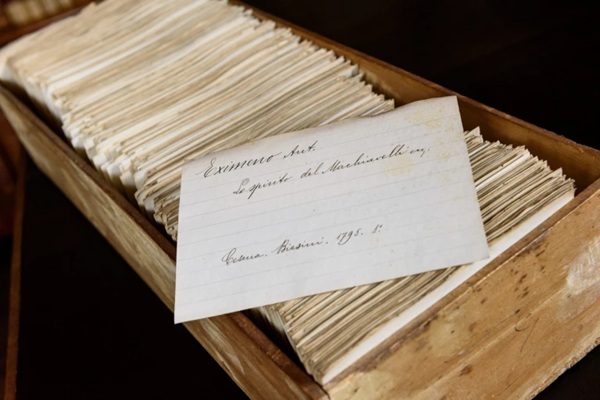 Eximeno Ant.
Lo spirito del Machiavelli ec.
Cesena. Biasini. 1795. 8.°